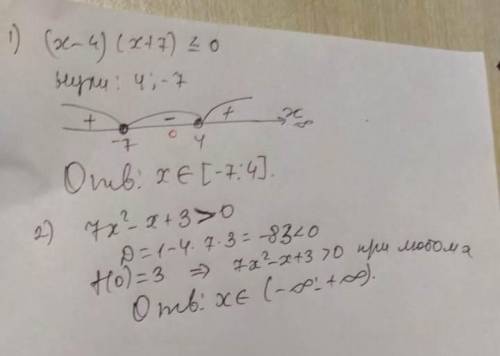 1) (x-4)(x+7) ≤ 0
нули: 4; -7
+ - + x
-7 0 4
Отв: x ∈ [-7; 4].
2) 7x²-x+3>0
D=1-4·7·3=-83<0
f(0)=3 ⇒ 7x²-x+3>0 при любом x
Отв: x ∈ (-∞; +∞).